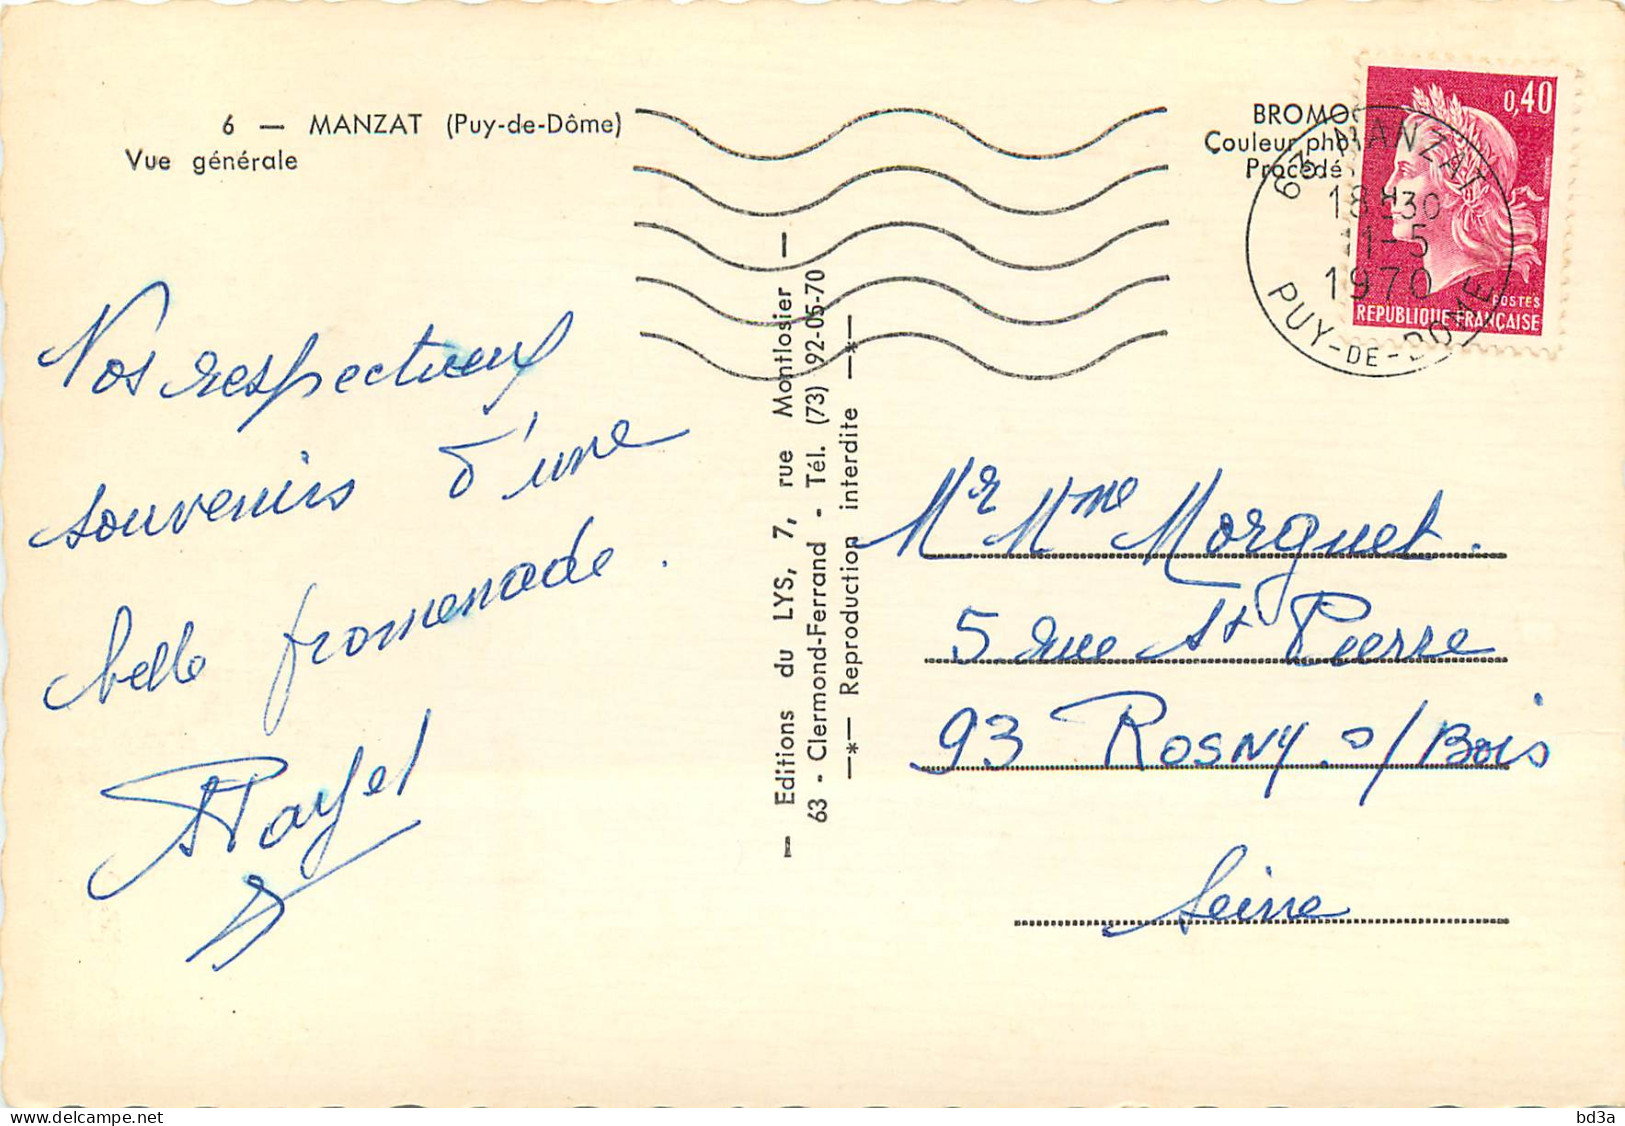 6 — MANZAT (Puy-de-Dôme)
Vue générale
BROMO
Couleur pho
Procédé
0,40
POSTES
REPUBLIQUE FRANÇAISE
63 MANZAT
18H30
11-5
1970
PUY-DE-DOME
Nos respectueux
souvenirs d'une
belle promenade.
— Editions du LYS, 7, rue Montlosier —
63 - Clermond-Ferrand - Tél. (73) 92-05-70
—*— Reproduction interdite —*—
Mr Mme Morguet.
5 rue St Pierre
93 ROSNY s/Bois
Seine
www.delcampe.net
bd3a